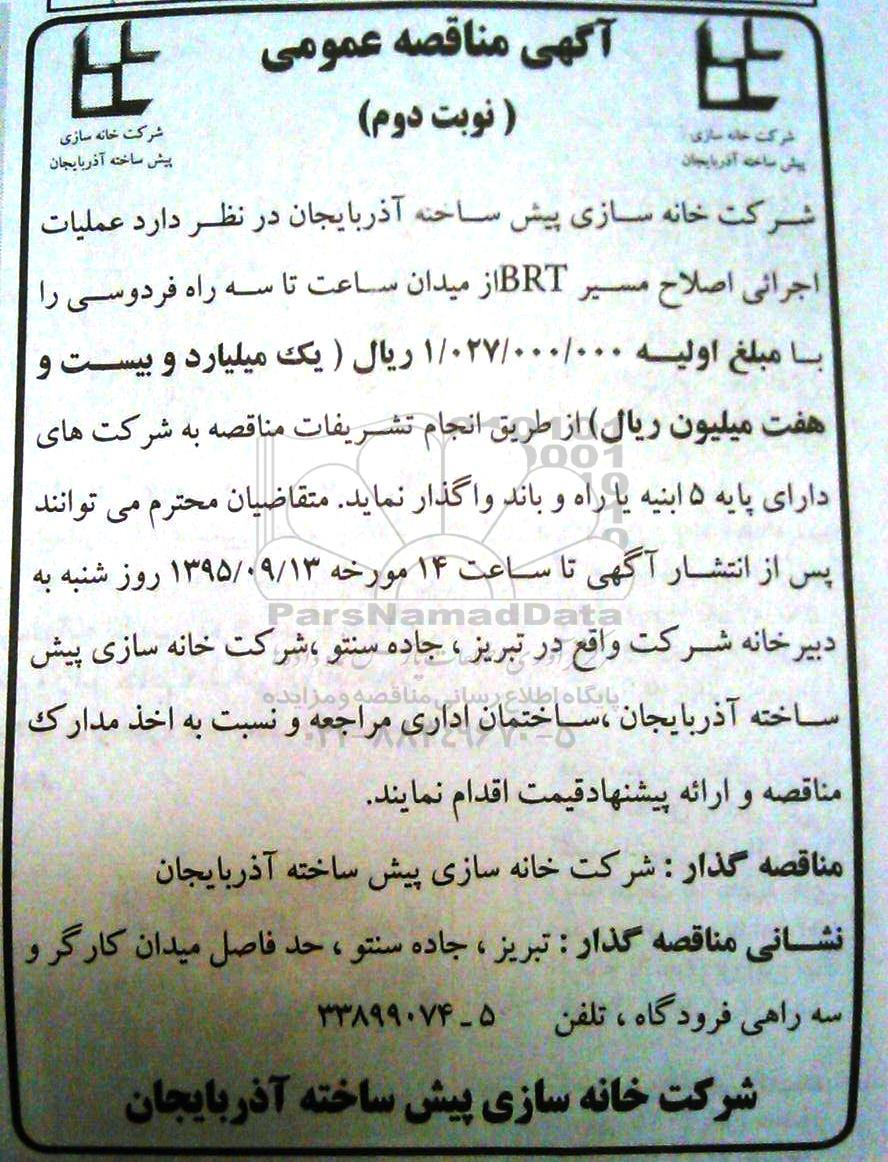 آگهی مناقصه عمومی
( نوبت دوم)
شرکت خانه سازی
پیش ساخته آذربایجان
شرکت خانه سازی
پیش ساخته آذربایجان
شرکت خانه سازی پیش ساخته آذربایجان در نظر دارد عملیات
اجرائی اصلاح مسیر BRTاز میدان ساعت تا سه راه فردوسی را
با مبلغ اولیه ۱/۰۲۷/۰۰۰/۰۰۰ ریال ( یک میلیارد و بیست و
هفت میلیون ریال) از طریق انجام تشریفات مناقصه به شرکت های
دارای پایه ۵ ابنیه یا راه و باند واگذار نماید. متقاضیان محترم می توانند
پس از انتشار آگهی تا ساعت ۱۴ مورخه ۱۳۹۵/۰۹/۱۳ روز شنبه به
دبیرخانه شرکت واقع در تبریز ، جاده سنتو ،شرکت خانه سازی پیش
ساخته آذربایجان ،ساختمان اداری مراجعه و نسبت به اخذ مدارک
مناقصه و ارائه پیشنهادقیمت اقدام نمایند.
مناقصه گذار : شرکت خانه سازی پیش ساخته آذربایجان
نشانی مناقصه گذار : تبریز ، جاده سنتو ، حد فاصل میدان کارگر و
سه راهی فرودگاه ، تلفن ۵ ـ ۳۳۸۹۹۰۷۴
شرکت خانه سازی پیش ساخته آذربایجان
ParsNamadData
پایگاه اطلاع رسانی مناقصه و مزایده
۰۲۱-۸۸۳۴۹۶۷۰-۵